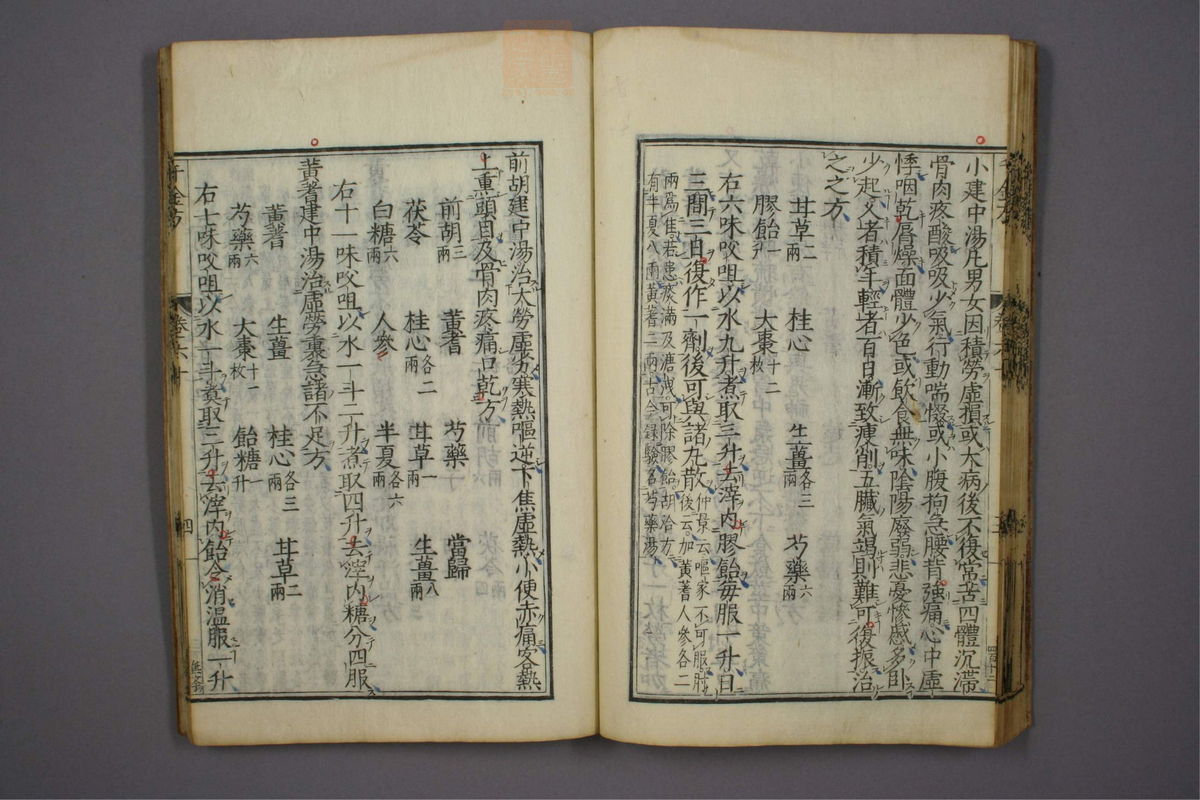 小建中湯凡男女因積勞虛損或大病後不復常苦四體沉滯
骨肉疼酸吸吸少氣行動喘惙或小腹拘急腰背強痛心中虛
悸咽乾脣燥面體少色或飲食無味陰陽廢弱悲憂慘慼多卧
少起久者積年輕者百日漸致瘦削五臟氣竭則難可復振治
之之方
甘草二兩 桂心 生薑各三兩 芍藥六兩
膠飴一升 大棗十二枚
右六味㕮咀以水九升煮取三升去滓內膠飴每服一升日
三間三日復作一劑後可與諸丸散仲景云嘔家不可服
後云加黃耆人參各二
兩爲佳若患痰滿及溏泄可除膠飴胡洽方
有半夏八兩黃耆二兩古今錄驗名芍藥湯
前胡建中湯治大勞虛劣寒熱嘔逆下焦虛熱小便赤痛客熱
上熏頭目及骨肉疼痛口乾方
前胡三兩 黃耆 芍藥 當歸
茯苓 桂心各二兩 甘草一兩 生薑八兩
白糖六兩 人參 半夏各六兩
右十一味㕮咀以水一斗二升煮取四升去滓內糖分四服
黃耆建中湯治虛勞裏急諸不足方
黃耆 生薑 桂心各三兩 甘草二兩
芍藥六兩 大棗十二枚 飴糖一升
右七味㕮咀以水一斗煮取三升去滓內飴令消溫服一升
千金方 卷六十 四